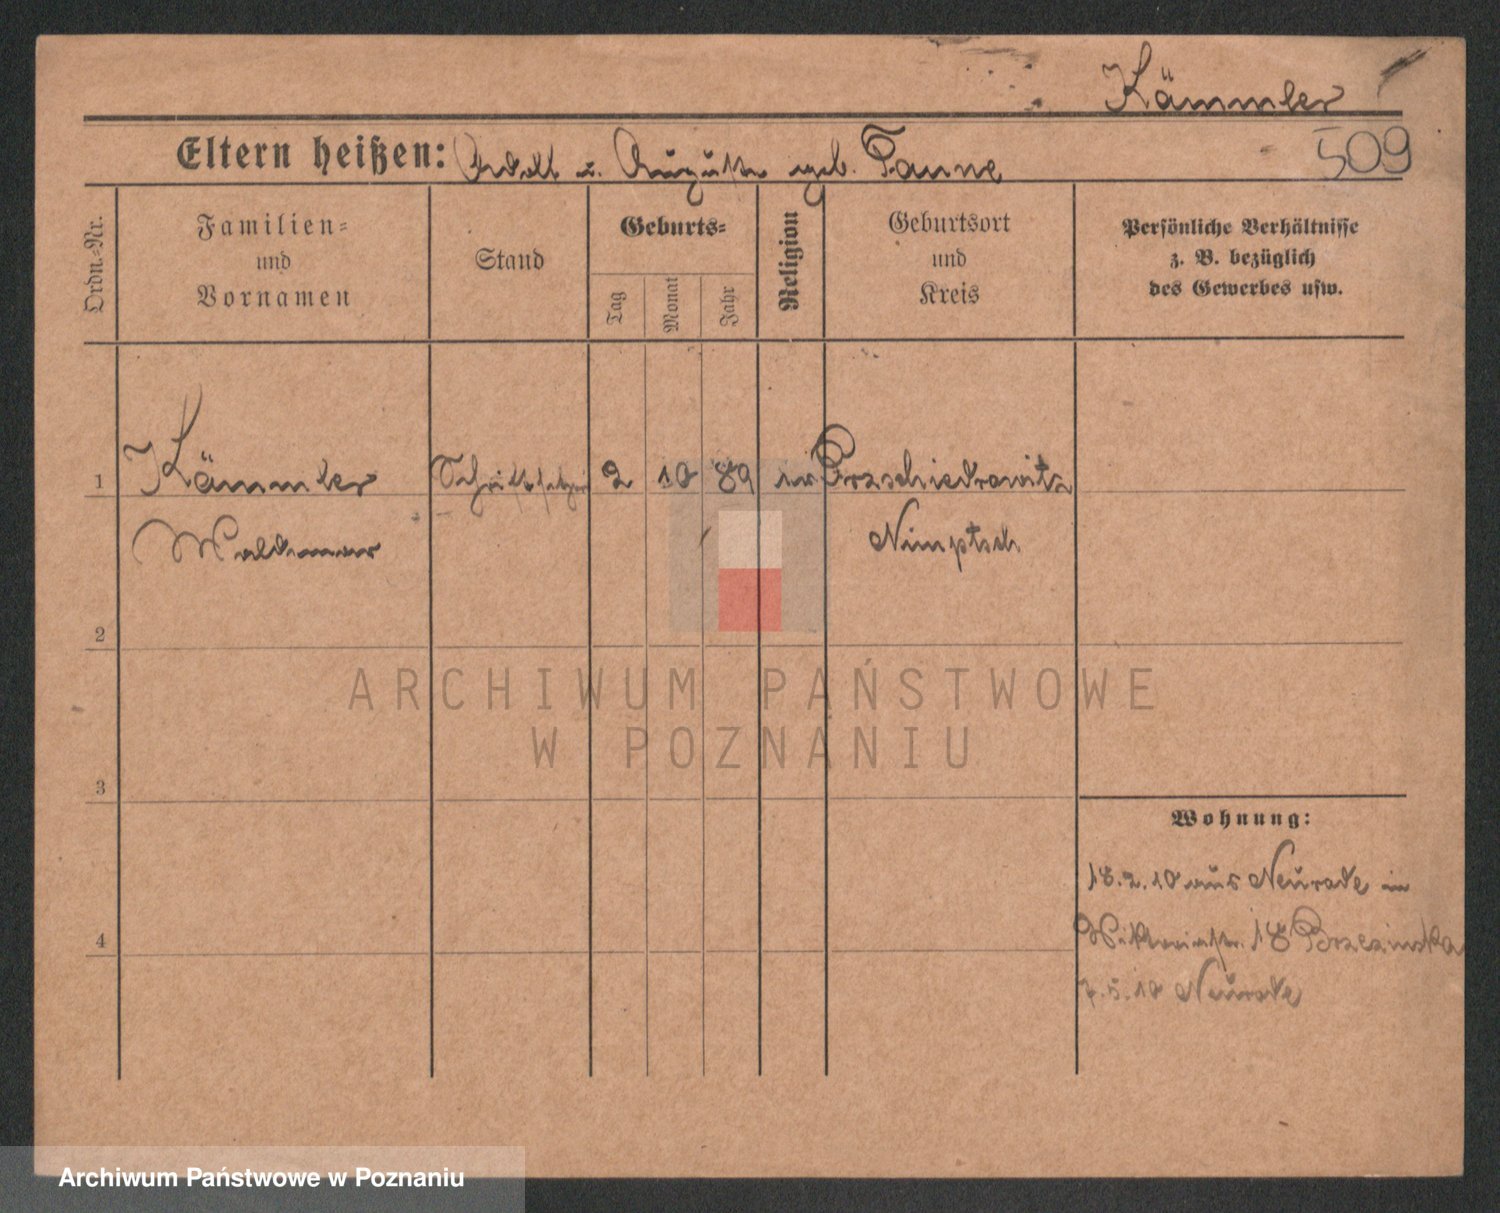 Kämmler
Eltern heißen: Adolf u. Auguste geb. Tanne
509
Ordn.-Nr.
Familien-
und
Vornamen
Stand
Geburts-
Tag
Monat
Jahr
Religion
Geburtsort
und
Kreis
Persönliche Verhältnisse
z. B. bezüglich
des Gewerbes usw.
1 Kämmler Schriftsetzer 2 10 89 Przschiedrowitz
Waldemar Nimptsch
2
3
4
Wohnung:
18.2.10 aus Neurode in
Viktoriastr. 18 Brzezinska
7.5.10 Neurode
ARCHIWUM PAŃSTWOWE
W POZNANIU
Archiwum Państwowe w Poznaniu